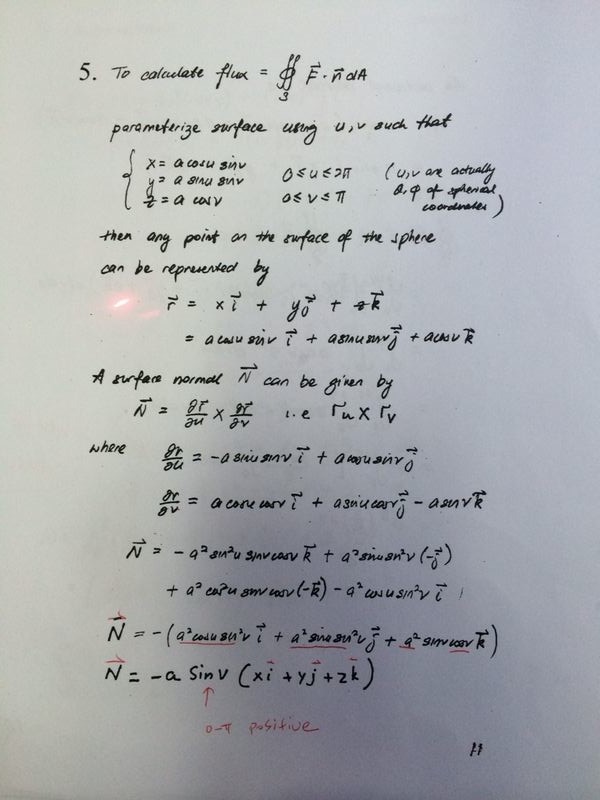 5. To calculate flux = ∯ F⃗ · n⃗ dA
S
parameterize surface using u, v such that
x = a cosu sinv
y = a sinu sinv 0 ≤ u ≤ 2π (u,v are actually
z = a cosv 0 ≤ v ≤ π θ, φ of spherical
coordinates)
then any point on the surface of the sphere
can be represented by
r⃗ = x i⃗ + y j⃗ + z k⃗
= a cosu sinv i⃗ + a sinu sinv j⃗ + a cosv k⃗
A surface normal N⃗ can be given by
N⃗ = ∂r⃗/∂u × ∂r⃗/∂v i.e r⃗u × r⃗v
where ∂r⃗/∂u = -a sinu sinv i⃗ + a cosu sinv j⃗
∂r⃗/∂v = a cosu cosv i⃗ + a sinu cosv j⃗ - a sinv k⃗
N⃗ = -a² sin²u sinv cosv k⃗ + a² sinu sin²v (-j⃗)
+ a² cos²u sinv cosv (-k⃗) - a² cosu sin²v i⃗
N⃗ = -(a² cosu sin²v i⃗ + a² sinu sin²v j⃗ + a² sinv cosv k⃗)
N⃗ = -a sinv (x i⃗ + y j⃗ + z k⃗)
↑
0-π positive